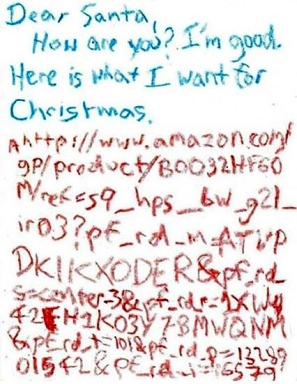 Dear Santa,
How are you? I'm good.
Here is what I want for
Christmas.
Ahttp://www.amazon.com/
gp/product/B0032HF60
M/ref=s9_hps_bw_g21_
ir03?pf_rd_m=ATVP
DKIKX0DER&pf_rd_
s=center-3&pf_rd_r=1XWy
42EH1K03Y78MWQNM
&pf_rd_t=101&pf_rd_p=13289
01542&pf_rd_i=16579?